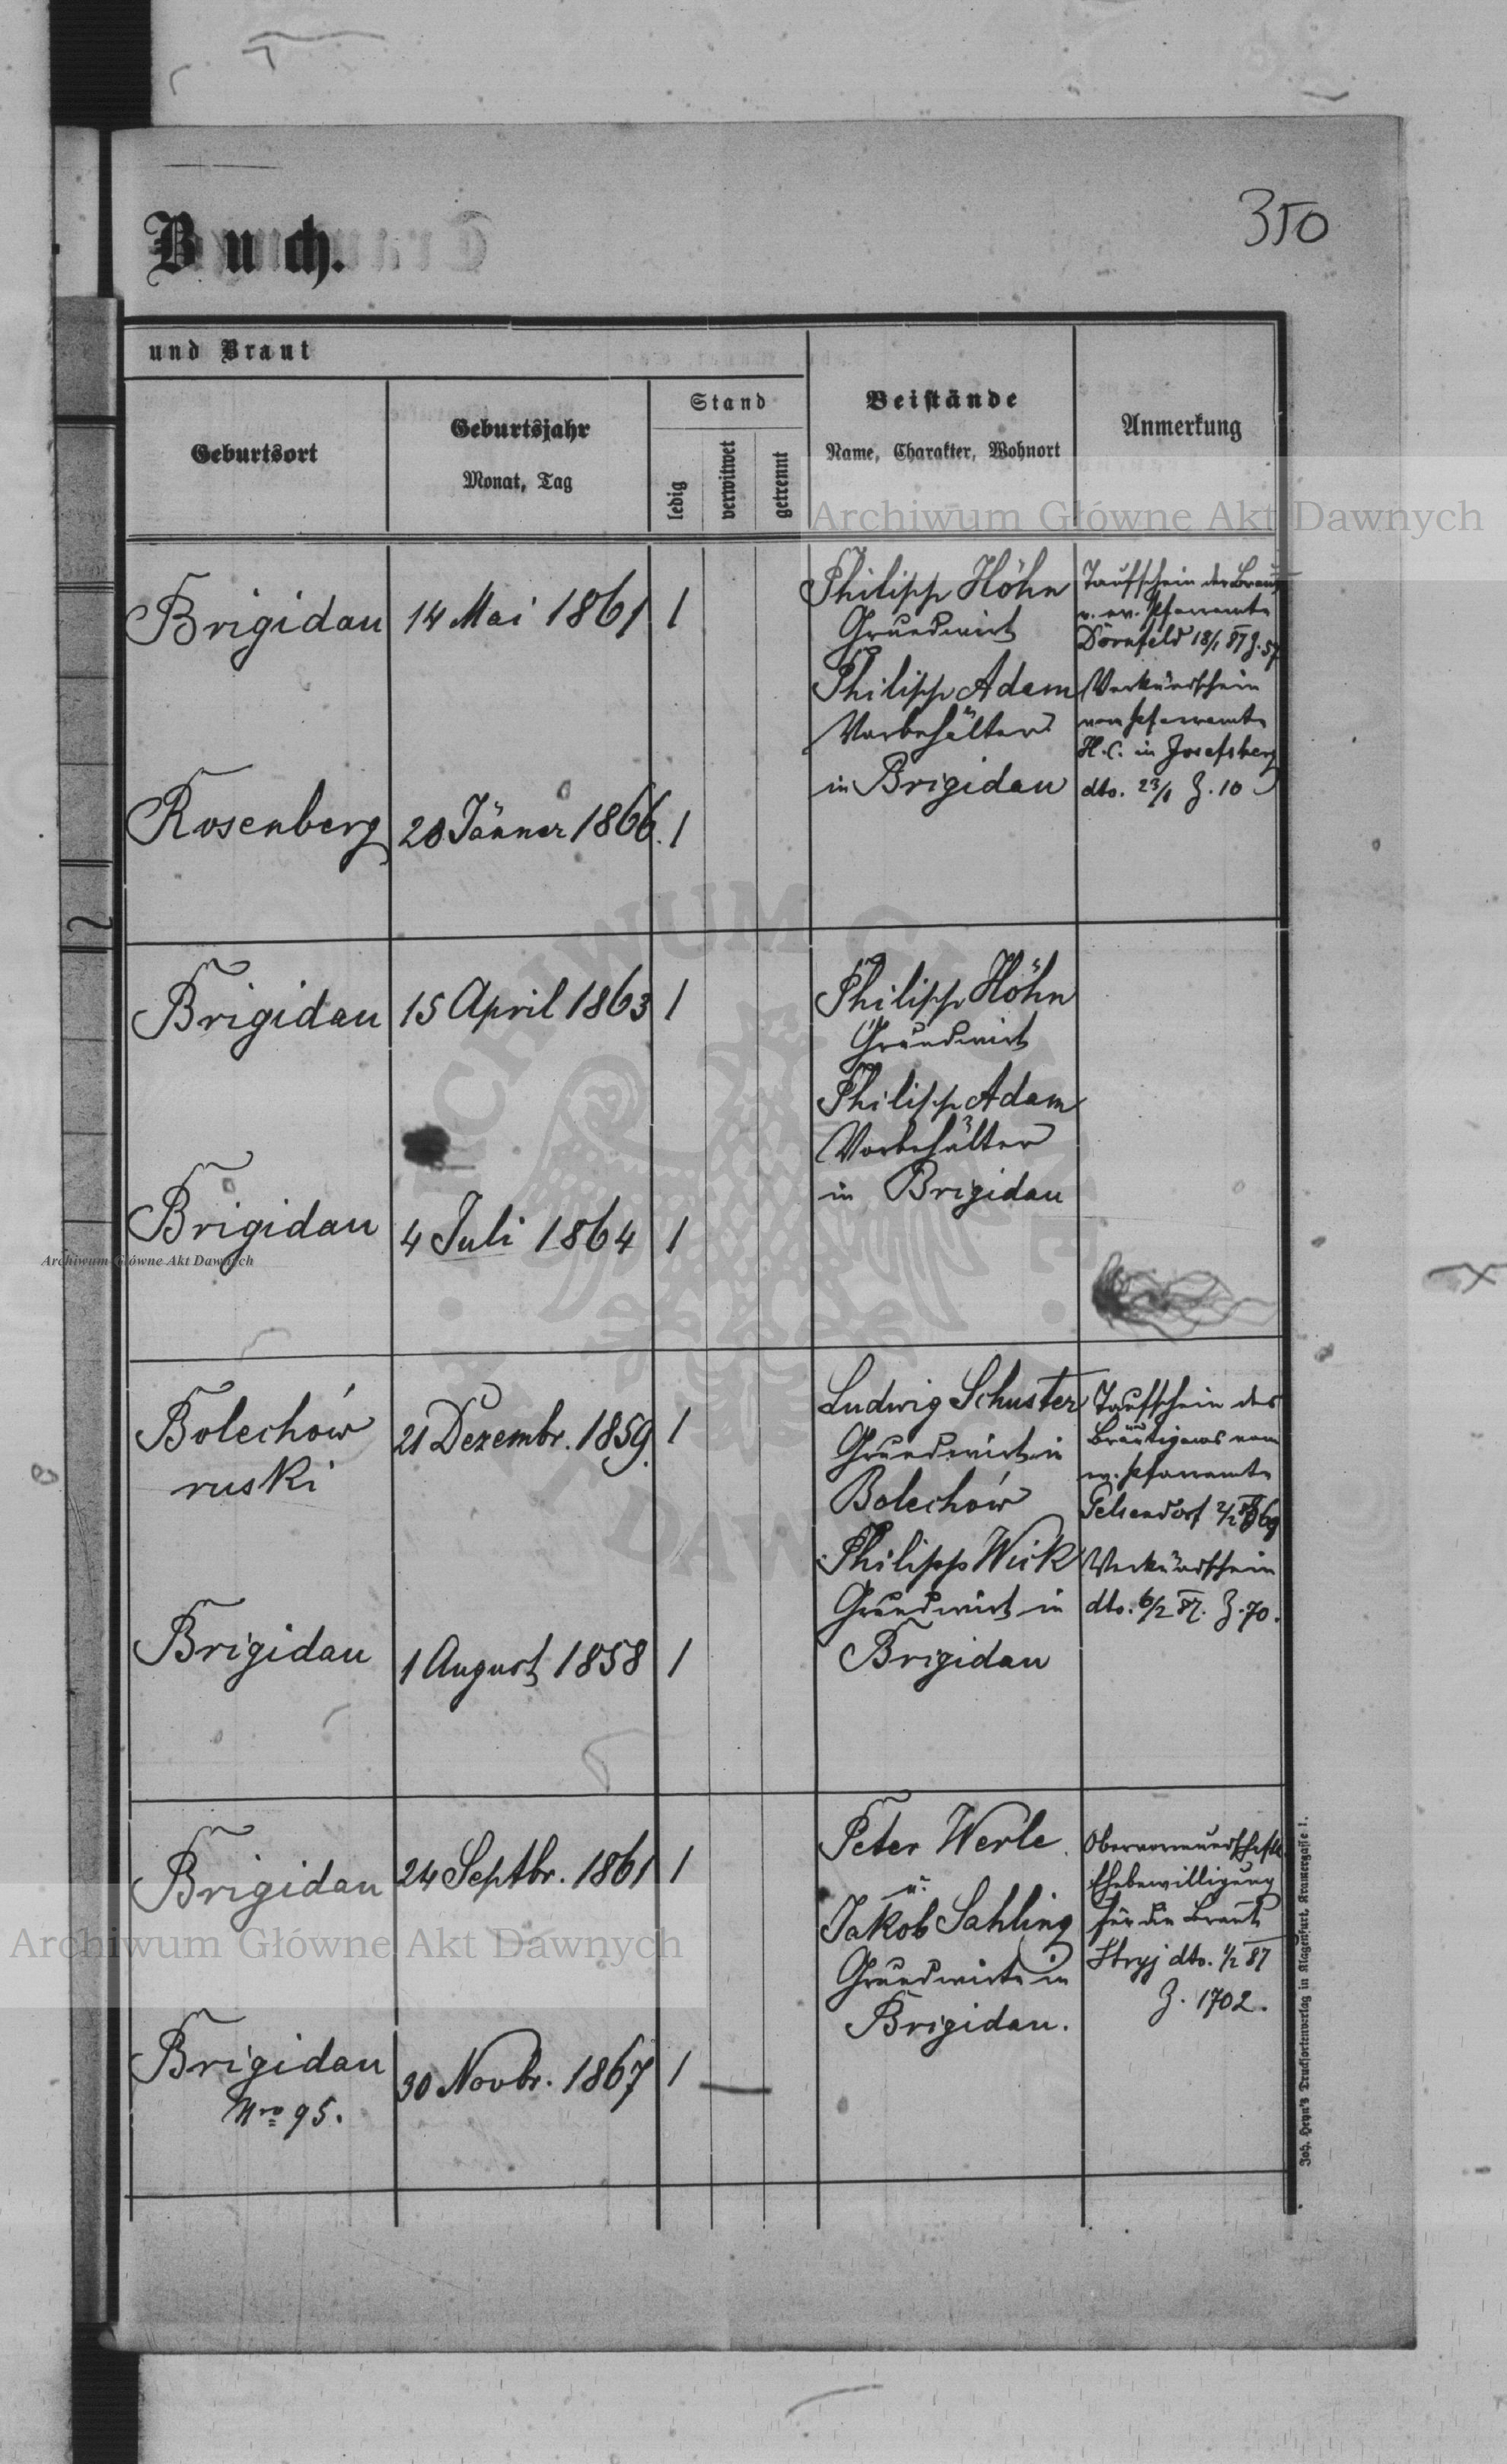 350
Buch.
und Braut
Geburtsort
Geburtsjahr
Monat, Tag
Stand
ledig
verwitwet
getrennt
Beistände
Name, Charakter, Wohnort
Anmerkung
Archiwum Główne Akt Dawnych
Brigidau
14 Mai 1861
1
Philipp Höhn
Grundwirt
Philipp Adam
Vorbehälter
in Brigidau
Taufschein der Braut
v. ev. Pfarramte
Dornfeld 18/1 87 Z. 57
Verkündschein
vom Pfarramte
H. C. in Josefsberg
dto. 23/1 Z. 10
Rosenberg
28 Jänner 1866.
1
Brigidau
15 April 1863
1
Philipp Höhn
Grundwirt
Philipp Adam
Vorbehälter
in Brigidau
Brigidau
4 Juli 1864
1
Archiwum Główne Akt Dawnych
Bolechów
ruski
21 Dezembr. 1859.
1
Ludwig Schuster
Grundwirt in
Bolechów
Philipp Wick
Grundwirt in
Brigidau
Taufschein des
Bräutigams vom
ev. Pfarramte
Gelsendorf 2/2
Verkündschein
dto. 6/2 87. Z. 70.
Brigidau
1 August 1858
1
Brigidau
24 Septbr. 1861
1
Peter Werle
u.
Jakob Sahling
Grundwirte in
Brigidau.
Obervormundschaftl.
Ehebewilligung
für die Braut
Stryj dto. 1/2 87
Z. 1702.
Archiwum Główne Akt Dawnych
Brigidau
Nro 95.
30 Novbr. 1867
1
Joh. Heyn's Drucksortenverlag in Klagenfurt, Kramergasse 1.